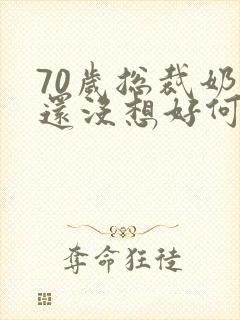 70歲总裁奶
還沒想好何
夺命狂徒